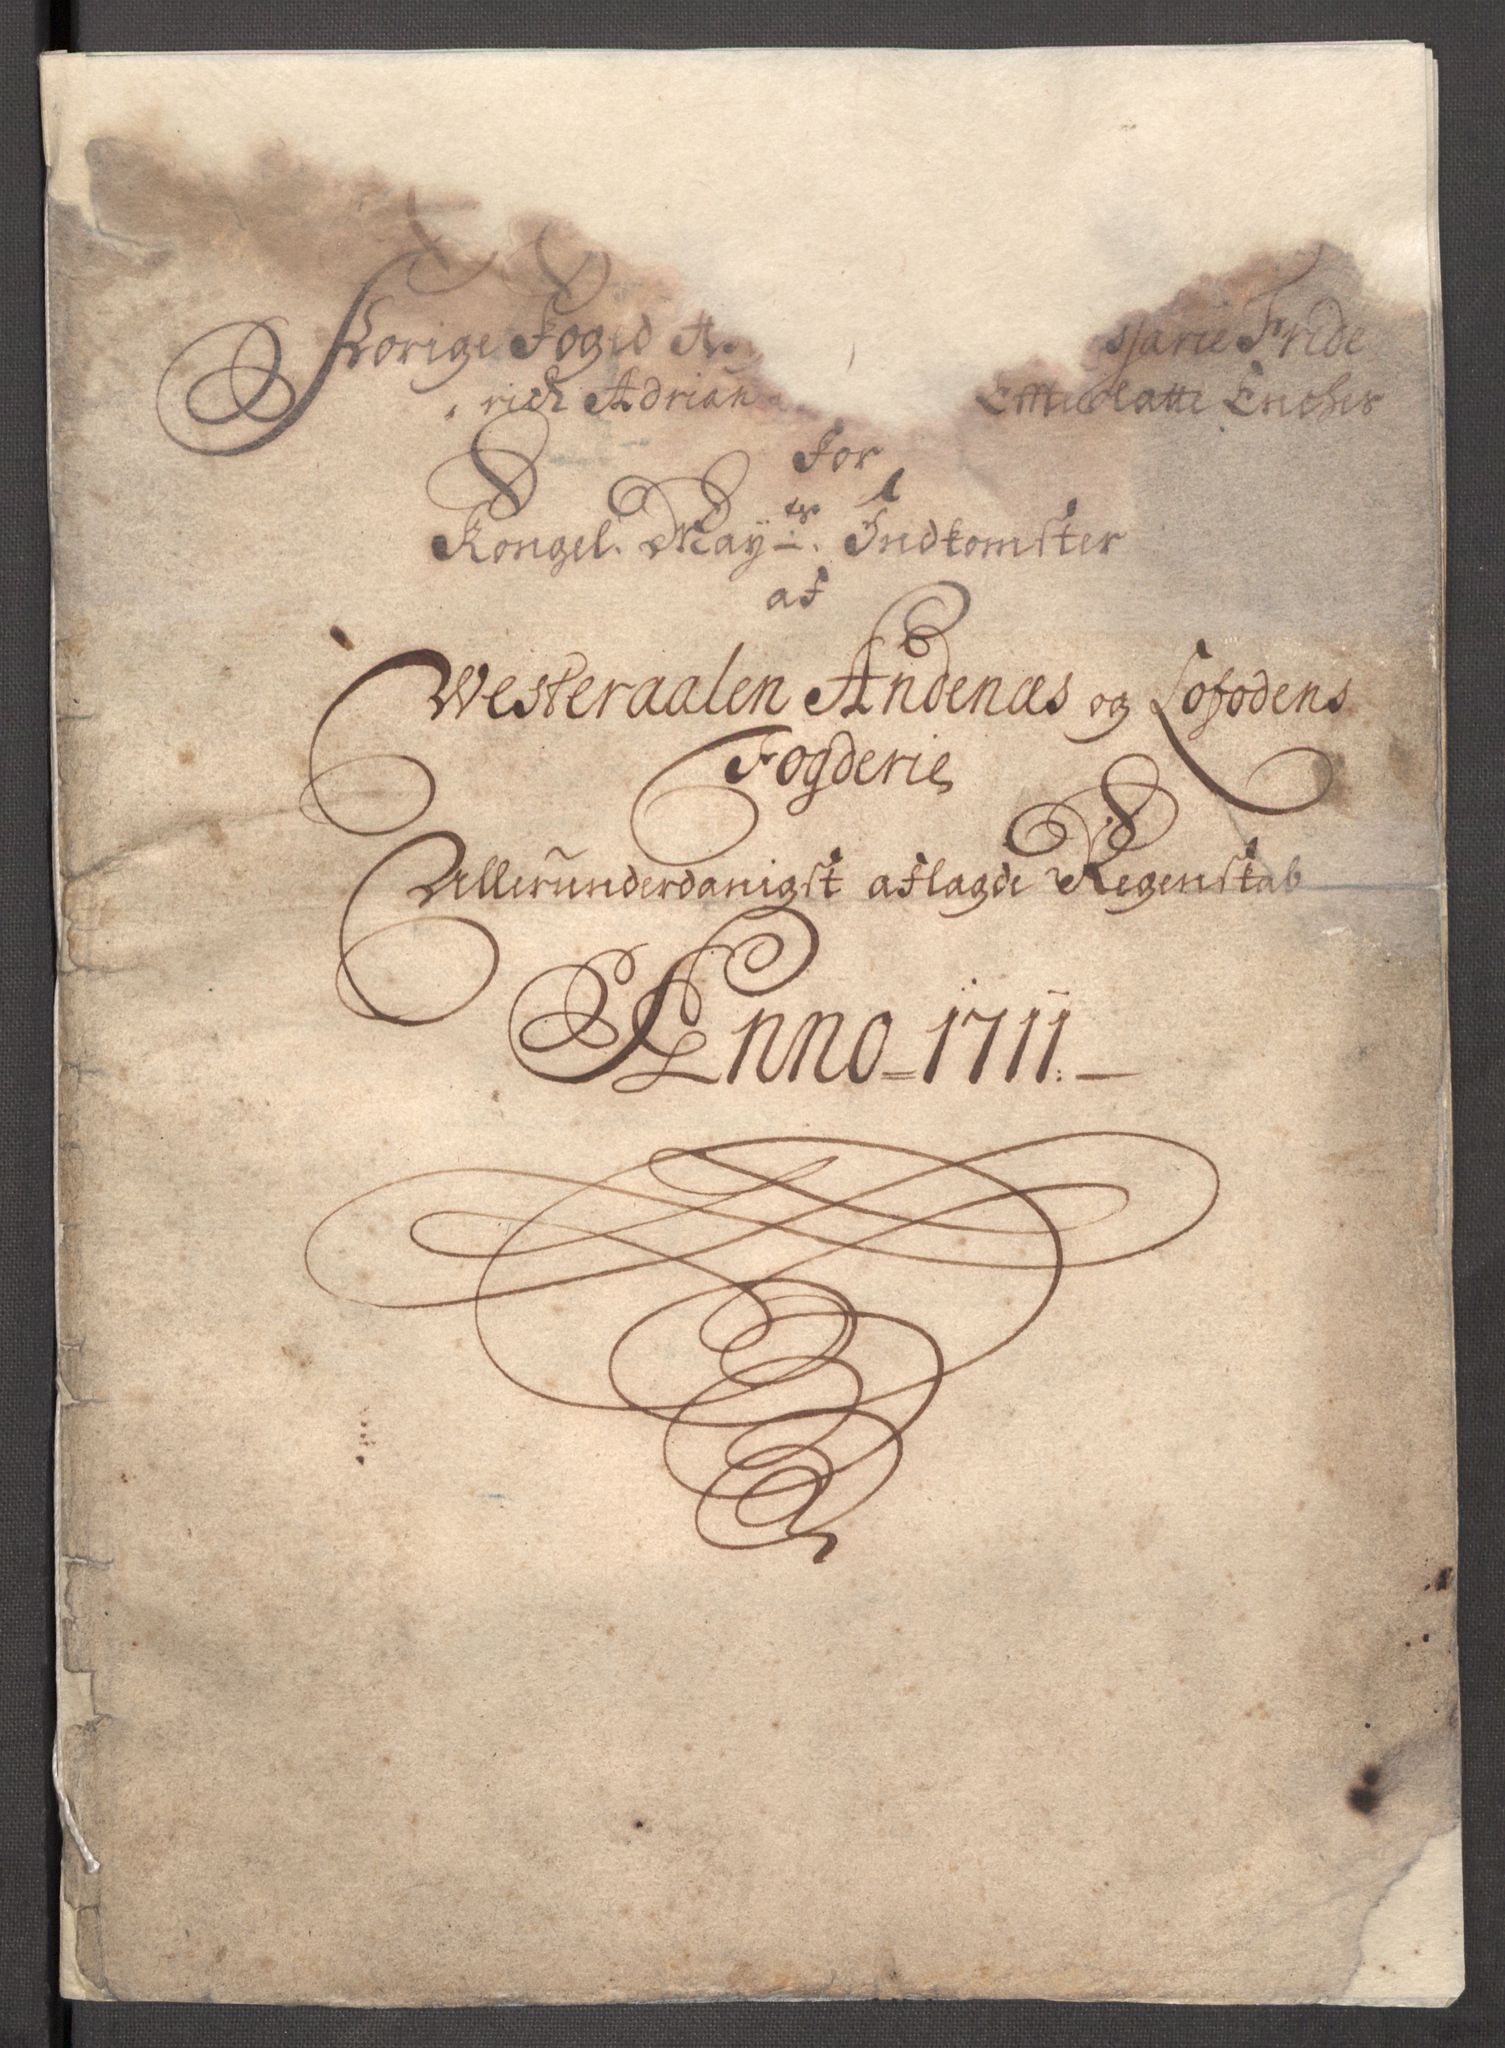 Forige Foged A Marie Fride
rich Adrian Effterlatte Enches
For
Kongel. Mayts. Indkomster
af
Westeraalen Andenæs og Lofodens
Fogderie
Allerunderdanigst aflagde Regenskab
Anno = 1711. —